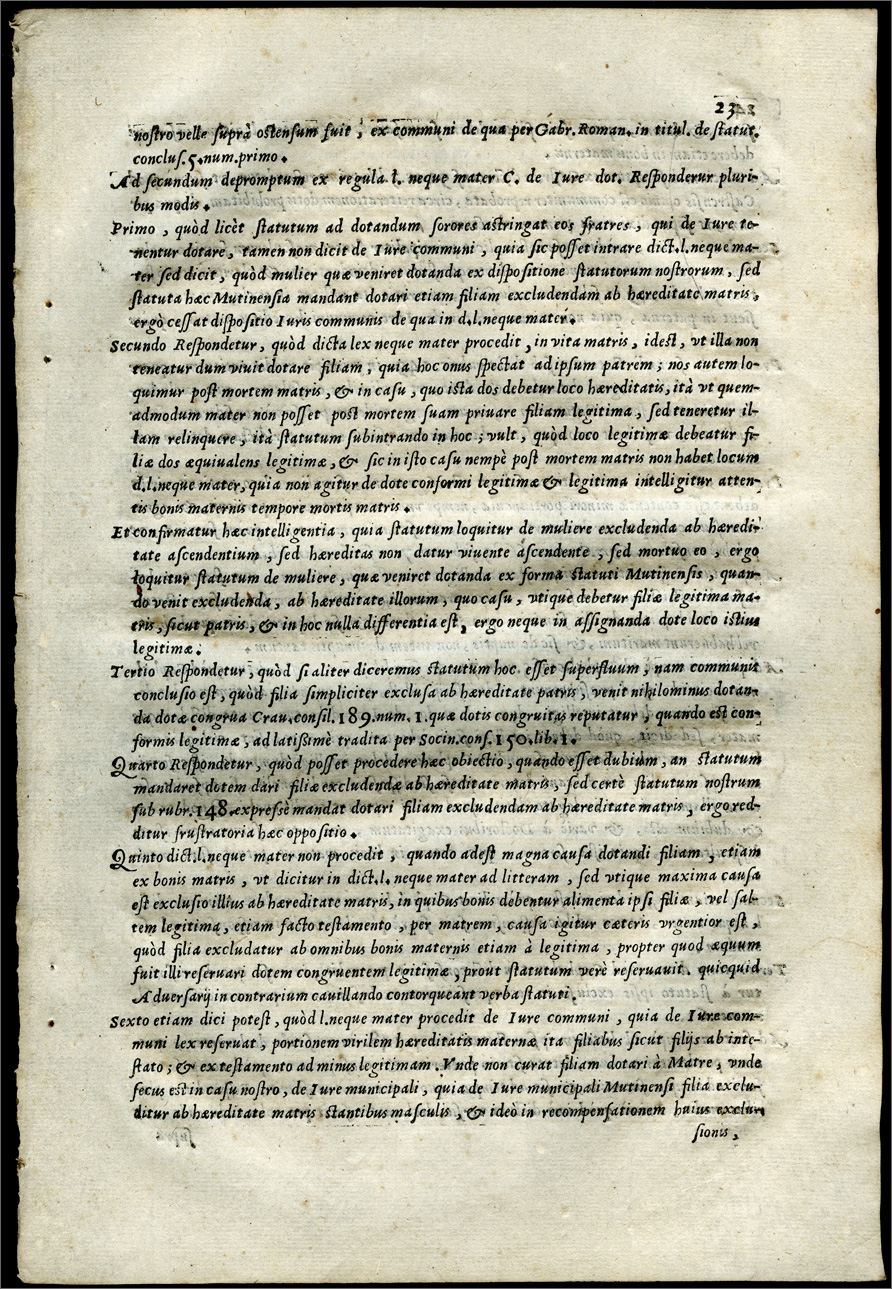 23
nostro velle suprà ostensum fuit, ex communi de qua per Gabr. Roman. in titul. de statut.
conclus. 5. num. primo.
Ad secundum depromptum ex regula l. neque mater C. de Iure dot. Respondetur pluri-
bus modis.
Primo, quòd licèt statutum ad dotandum sorores astringat eos fratres, qui de Iure te-
nentur dotare, tamen non dicit de Iure communi, quia sic posset intrare dict. l. neque ma-
ter sed dicit, quòd mulier quæ veniret dotanda ex dispositione statutorum nostrorum, sed
statuta hæc Mutinensia mandant dotari etiam filiam excludendam ab hæreditate matris,
ergò cessat dispositio Iuris communis de qua in d. l. neque mater.
Secundo Respondetur, quòd dicta lex neque mater procedit, in vita matris, idest, vt illa non
teneatur dum viuit dotare filiam, quia hoc onus spectat ad ipsum patrem; nos autem lo-
quimur post mortem matris, & in casu, quo ista dos debetur loco hæreditatis, ità vt quem-
admodum mater non posset post mortem suam priuare filiam legitima, sed teneretur il-
lam relinquere, ità statutum subintrando in hoc; vult, quòd loco legitimæ debeatur fi-
liæ dos æquiualens legitimæ, & sic in isto casu nempè post mortem matris non habet locum
d. l. neque mater, quia non agitur de dote conformi legitimæ & legitima intelligitur atten-
tis bonis maternis tempore mortis matris.
Et confirmatur hæc intelligentia, quia statutum loquitur de muliere excludenda ab hæredi-
tate ascendentium, sed hæreditas non datur viuente ascendente, sed mortuo eo, ergo
loquitur statutum de muliere, quæ veniret dotanda ex forma Statuti Mutinensis, quan-
do venit excludenda, ab hæreditate illorum, quo casu, vtique debetur filiæ legitima ma-
tris, sicut patris, & in hoc nulla differentia est, ergo neque in assignanda dote loco istius
legitimæ.
Tertio Respondetur, quòd si aliter diceremus Statutum hoc esset superfluum, nam communis
conclusio est, quòd filia simpliciter exclusa ab hæreditate patris, venit nihilominus dotan-
da dotæ congrua Crau. consil. 189. num. 1. quæ dotis congruitas reputatur, quando est con-
formis legitimæ, ad latissimè tradita per Socin. cons. 150. lib. 1.
Quarto Respondetur, quòd posset procedere hæc obiectio, quando esset dubium, an Statutum
mandaret dotem dari filiæ excludendæ ab hæreditate matris, sed certè Statutum nostrum
sub rubr. 148. expressè mandat dotari filiam excludendam ab hæreditate matris, ergo red-
ditur frustratoria hæc oppositio.
Quinto dict. l. neque mater non procedit, quando adest magna causa dotandi filiam, etiam
ex bonis matris, vt dicitur in dict. l. neque mater ad litteram, sed vtique maxima causa
est exclusio illius ab hæreditate matris, in quibus bonis debentur alimenta ipsi filiæ, vel sal-
tem legitima, etiam facto testamento, per matrem, causa igitur cæteris vrgentior est,
quòd filia excludatur ab omnibus bonis maternis etiam à legitima, propter quod æquum
fuit illi reseruari dotem congruentem legitimæ, prout statutum verè reseruauit. quicquid
Aduersarij in contrarium cauillando contorqueant verba statuti.
Sexto etiam dici potest, quòd l. neque mater procedit de Iure communi, quia de Iure com-
muni lex reseruat, portionem virilem hæreditatis maternæ ita filiabus sicut filijs ab inte-
stato; & ex testamento ad minus legitimam. Vnde non curat filiam dotari à Matre, vnde
secus est in casu nostro, de Iure municipali, quia de Iure municipali Mutinensi filia exclu-
ditur ab hæreditate matris stantibus masculis, & ideò in recompensationem huius exclu-
sionis,